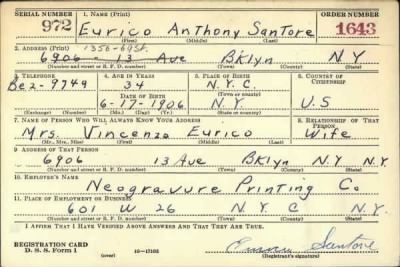 SERIAL NUMBER 1. NAME (Print) ORDER NUMBER
972 Eurico Anthony Santore 1643
(First) (Middle) (Last)
2. ADDRESS (Print) 1356-69 St.
6906 - 13 Ave BKlyn N Y
(Number and street or R. F. D. number) (Town) (County) (State)
3. TELEPHONE 4. AGE IN YEARS 5. PLACE OF BIRTH 6. COUNTRY OF CITIZENSHIP
34 N.Y.C.
Be2-9749 DATE OF BIRTH (Town or county)
6-17-1906 N.Y. U.S
(Exchange) (Number) (Mo.) (Day) (Yr.) (State or country)
7. NAME OF PERSON WHO WILL ALWAYS KNOW YOUR ADDRESS 8. RELATIONSHIP OF THAT PERSON
Mrs. Vincenza Eurico Wife
(Mr., Mrs., Miss) (First) (Middle) (Last)
9. ADDRESS OF THAT PERSON
6906 13 Ave BKlyn N.Y N.Y.
(Number and street or R. F. D. number) (Town) (County) (State)
10. EMPLOYER'S NAME
Neogravure Printing Co
11. PLACE OF EMPLOYMENT OR BUSINESS
601 W 26 N.Y C N.Y.
(Number and street or R. F. D. number) (Town) (County) (State)
I AFFIRM THAT I HAVE VERIFIED ABOVE ANSWERS AND THAT THEY ARE TRUE.
REGISTRATION CARD
D. S. S. Form 1 (over) 16-17105 Santore
(Registrant's signature)